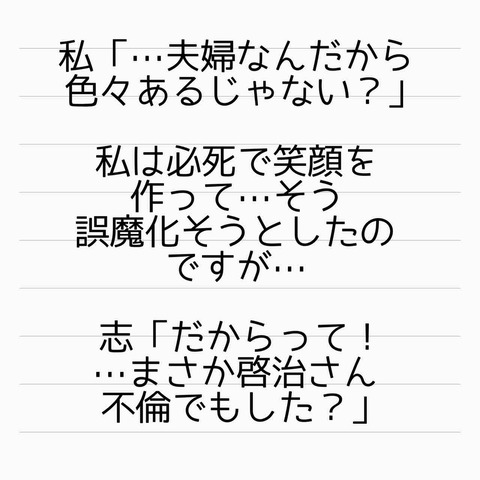 私「…夫婦なんだから
色々あるじゃない？」
私は必死で笑顔を
作って…そう
誤魔化そうとしたの
ですが…
志「だからって！
…まさか啓治さん
不倫でもした？」